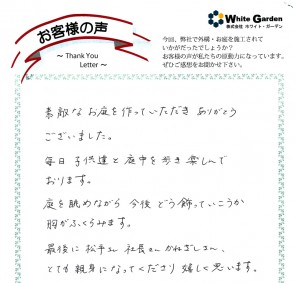 お客様の声
～ Thank You
Letter ～
White Garden
株式会社 ホワイト・ガーデン
今回、弊社で外構・お庭を施工されて
いかがだったでしょうか？
お客様の声が私たちの原動力になっています。
ぜひご感想をお聞かせ下さい。
素敵な お庭を作っていただき ありがとう
ございました。
毎日 子供達と 庭中を歩き 楽しんで
おります。
庭を眺めながら 今後 どう飾っていこうか
胸がふくらみます。
最後に 松手さん 社長さん かねざしさん、
とても 親身になってくださり 嬉しく思います。